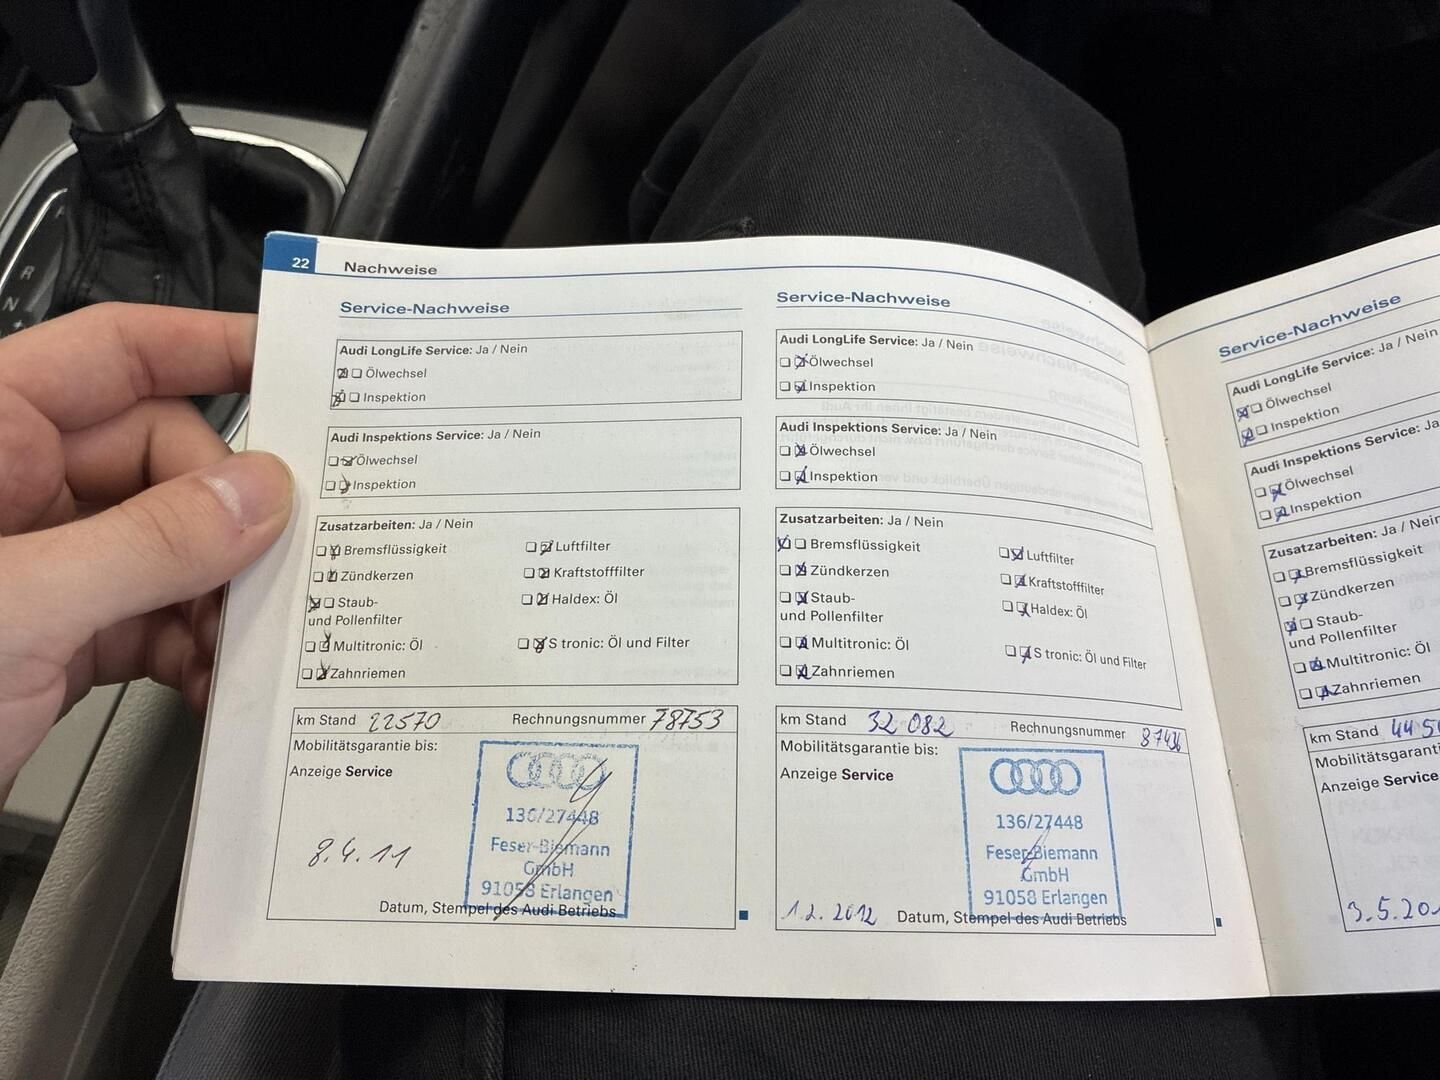 R
N
22 Nachweise
Service-Nachweise
Audi LongLife Service: Ja / Nein
Ölwechsel
Inspektion
Audi Inspektions Service: Ja / Nein
Ölwechsel
Inspektion
Zusatzarbeiten: Ja / Nein
Bremsflüssigkeit Luftfilter
Zündkerzen Kraftstofffilter
Staub- Haldex: Öl
und Pollenfilter
Multitronic: Öl S tronic: Öl und Filter
Zahnriemen
km Stand 22570 Rechnungsnummer 78753
Mobilitätsgarantie bis:
Anzeige Service
136/27448
Feser-Biemann
GmbH
91058 Erlangen
8.4.11
Datum, Stempel des Audi Betriebs
Service-Nachweise
Audi LongLife Service: Ja / Nein
Ölwechsel
Inspektion
Audi Inspektions Service: Ja / Nein
Ölwechsel
Inspektion
Zusatzarbeiten: Ja / Nein
Bremsflüssigkeit Luftfilter
Zündkerzen Kraftstofffilter
Staub- Haldex: Öl
und Pollenfilter
Multitronic: Öl S tronic: Öl und Filter
Zahnriemen
km Stand 32 082 Rechnungsnummer 87436
Mobilitätsgarantie bis:
Anzeige Service
136/27448
Feser-Biemann
GmbH
91058 Erlangen
1.2.2012 Datum, Stempel des Audi Betriebs
Service-Nachweise
Audi LongLife Service: Ja / Nein
Ölwechsel
Inspektion
Audi Inspektions Service: Ja
Ölwechsel
Inspektion
Zusatzarbeiten: Ja / Nein
Bremsflüssigkeit
Zündkerzen
Staub-
und Pollenfilter
Multitronic: Öl
Zahnriemen
km Stand
Mobilitätsgaranti
Anzeige Service
3.5.20